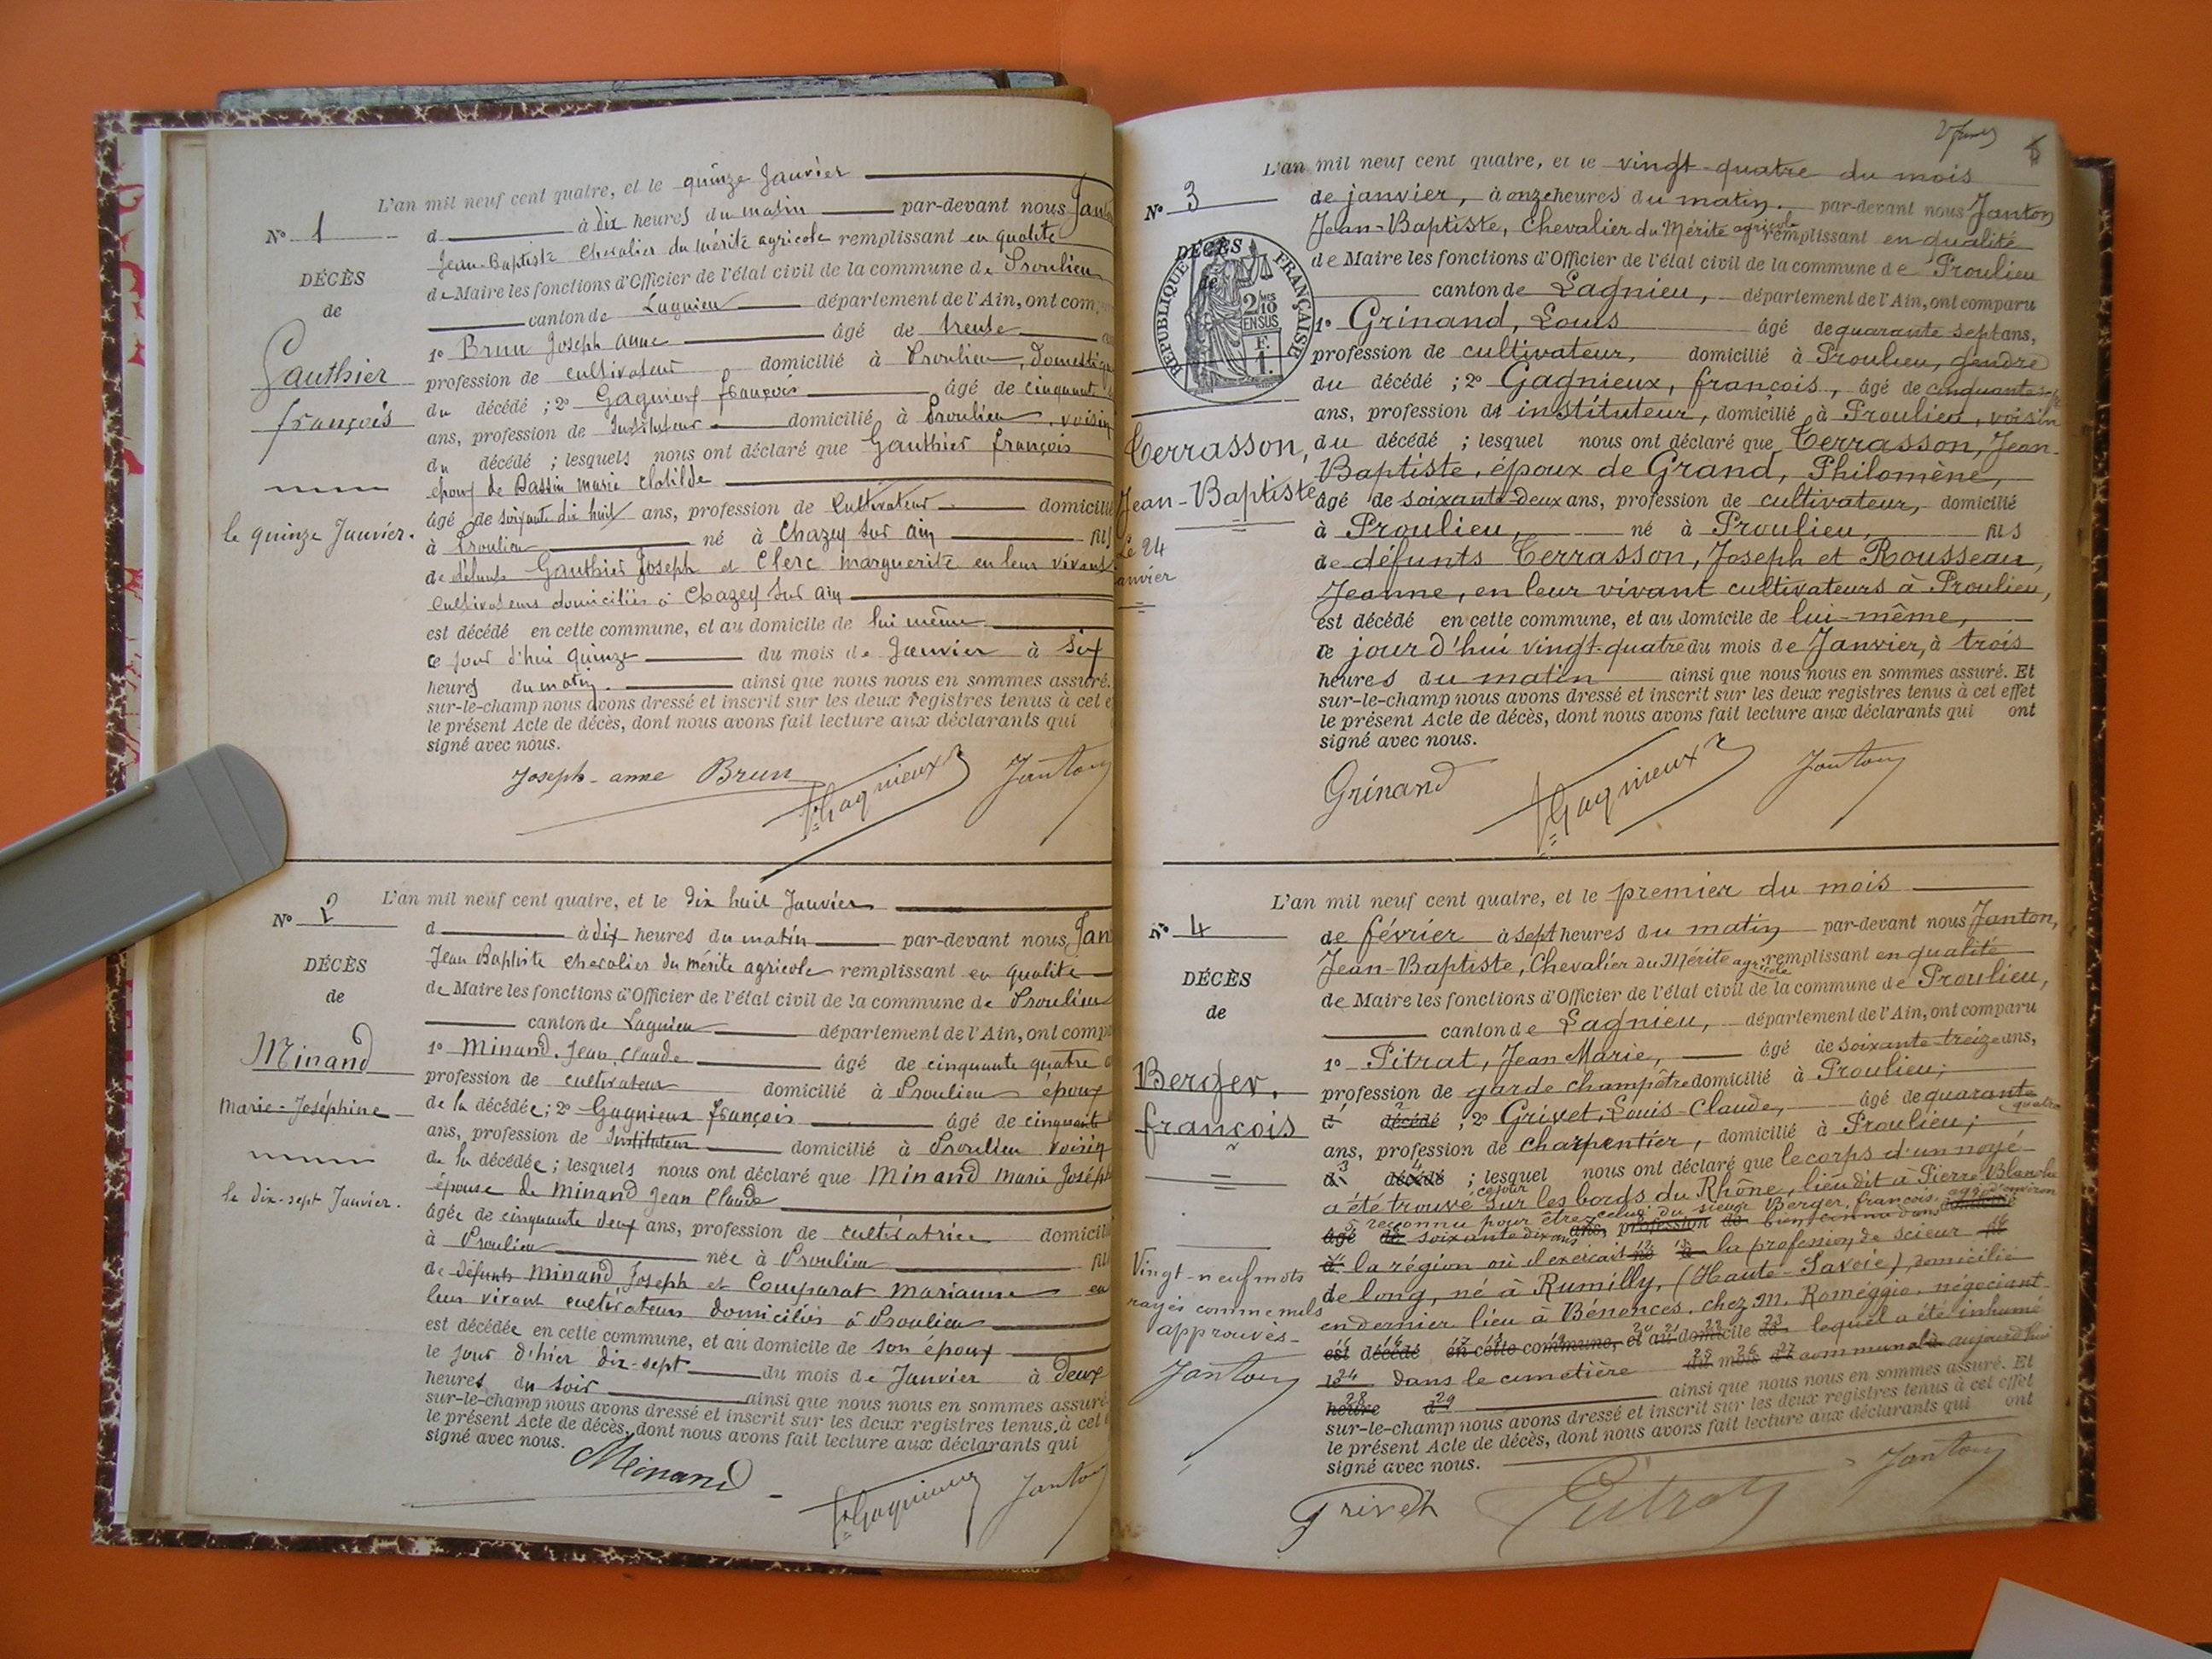 L'an mil neuf cent quatre, et le quinze Janvier
N° 1
d à dix heures du matin par-devant nous Jan
Jean-Baptiste Chevalier du mérite agricole remplissant en qualité
DÉCÈS
de Maire les fonctions d'Officier de l'état civil de la commune de Proulieu
de
canton de Lagnieu département de l'Ain, ont com
1° Brun Joseph anne âgé de trente
Gauthier
profession de cultivateur domicilié à Proulieu, domestiq
françois
du décédé ; 2° Gagnieux françois âgé de cinquante
ans, profession de Instituteur domicilié à Proulieu, voisin
du décédé ; lesquels nous ont déclaré que Gauthier françois
époux de Passin marie Clotilde
le quinze Janvier.
âgé de soixante dix huit ans, profession de Cultivateur domicilié
à Proulieu né à Chazey sur ain fils
de défunts Gauthier Joseph et Clerc marguerite en leur vivant
Cultivateurs domiciliés à Chazey sur ain
est décédé en cette commune, et au domicile de lui même
ce jour d'hui quinze du mois de Janvier à six
heures du matin. ainsi que nous nous en sommes assuré.
sur-le-champ nous avons dressé et inscrit sur les deux registres tenus à cet e
le présent Acte de décès, dont nous avons fait lecture aux déclarants qui
signé avec nous.
Joseph-anne Brun F. Gagnieux Janton
L'an mil neuf cent quatre, et le dix huit Janvier
N° 2
d à dix heures du matin par-devant nous Jan
Jean Baptiste chevalier du mérite agricole remplissant en qualité
DÉCÈS
de Maire les fonctions d'Officier de l'état civil de la commune de Proulieu
de
canton de Lagnieu département de l'Ain, ont comp
1° Minand, Jean Claude âgé de cinquante quatre
Minand
profession de cultivateur domicilié à Proulieu époux
Marie-Joséphine
de la décédée ; 2° Gagnieux françois âgé de cinquante
ans, profession de Instituteur domicilié à Proulieu voisin
de la décédée ; lesquels nous ont déclaré que Minand Marie Joséph
le dix-sept Janvier.
épouse de Minand Jean Claude
âgée de cinquante deux ans, profession de cultivatrice domicili
à Proulieu née à Proulieu fil
de défunts Minand Joseph et Comparat Marianne en
leur vivant cultivateurs domiciliés à Proulieu
est décédée en cette commune, et au domicile de son époux
le jour d'hier dix-sept du mois de Janvier à deux
heures du soir ainsi que nous nous en sommes assuré
sur-le-champ nous avons dressé et inscrit sur les deux registres tenus, à cet
le présent Acte de décès, dont nous avons fait lecture aux déclarants qui
signé avec nous.
Minand F. Gagnieux Janton
L'an mil neuf cent quatre, et le vingt-quatre du mois
N° 3
de janvier, à onze heures du matin. par-devant nous Janton
Jean-Baptiste, Chevalier du Mérite agricole remplissant en qualité
DÉCÈS
de
RÉPUBLIQUE FRANÇAISE
2/10 EN SUS
F. 1.
de Maire les fonctions d'Officier de l'état civil de la commune de Proulieu
canton de Lagnieu, département de l'Ain, ont comparu
1° Grinand, Louis âgé de quarante sept ans,
profession de cultivateur, domicilié à Proulieu, gendre
du décédé ; 2° Gagnieux, françois, âgé de cinquante
ans, profession d' instituteur, domicilié à Proulieu, voisin
Terrasson,
du décédé ; lesquel nous ont déclaré que Terrasson, Jean-
Baptiste, époux de Grand, Philomène,
Jean-Baptiste
âgé de soixante deux ans, profession de cultivateur, domicilié
à Proulieu, né à Proulieu, fils
Le 24
de défunts Terrasson, Joseph et Rousseau,
anvier
Jeanne, en leur vivant cultivateurs à Proulieu,
est décédé en cette commune, et au domicile de lui-même,
ce jour d'hui vingt-quatre du mois de Janvier, à trois
heures du matin ainsi que nous nous en sommes assuré. Et
sur-le-champ nous avons dressé et inscrit sur les deux registres tenus à cet effet
le présent Acte de décès, dont nous avons fait lecture aux déclarants qui ont
signé avec nous.
Grinand F. Gagnieux Janton
L'an mil neuf cent quatre, et le premier du mois
N° 4
de février à sept heures du matin par-devant nous Janton,
Jean-Baptiste, Chevalier du Mérite agricole remplissant en qualité
DÉCÈS
de Maire les fonctions d'Officier de l'état civil de la commune de Proulieu,
de
canton de Lagnieu, département de l'Ain, ont comparu
1° Pitrat, Jean Marie, âgé de soixante-treize ans,
Berger,
profession de garde champêtre domicilié à Proulieu ;
françois
d décédé ; 2° Grivet, Louis-Claude, âgé de quarante quatre
ans, profession de charpentier, domicilié à Proulieu ;
d décédé ; lesquel nous ont déclaré que le corps d'un noyé
a été trouvé ce jour sur les bords du Rhône, lieu dit à Pierre Blanche
reconnu pour être celui du sieur Berger, françois, âgé d'environ
âgé de soixante dix ans, profession de bien connu dans domicilié
Vingt-neuf mots
à la région où il exerçait né à la profession de scieur
rayés comme nuls
de long, né à Rumilly, (Haute-Savoie), domicilié
approuvés
en dernier lieu à Bénonces, chez M. Roméggio, négociant
est décédé en cette commune, et au domicile de lequel a été inhumé
Janton
le dans le cimetière du mois de communal aujourd'hui
heure d ainsi que nous nous en sommes assuré. Et
sur-le-champ nous avons dressé et inscrit sur les deux registres tenus à cet effet
le présent Acte de décès, dont nous avons fait lecture aux déclarants qui ont
signé avec nous.
Grivet Pitrat Janton